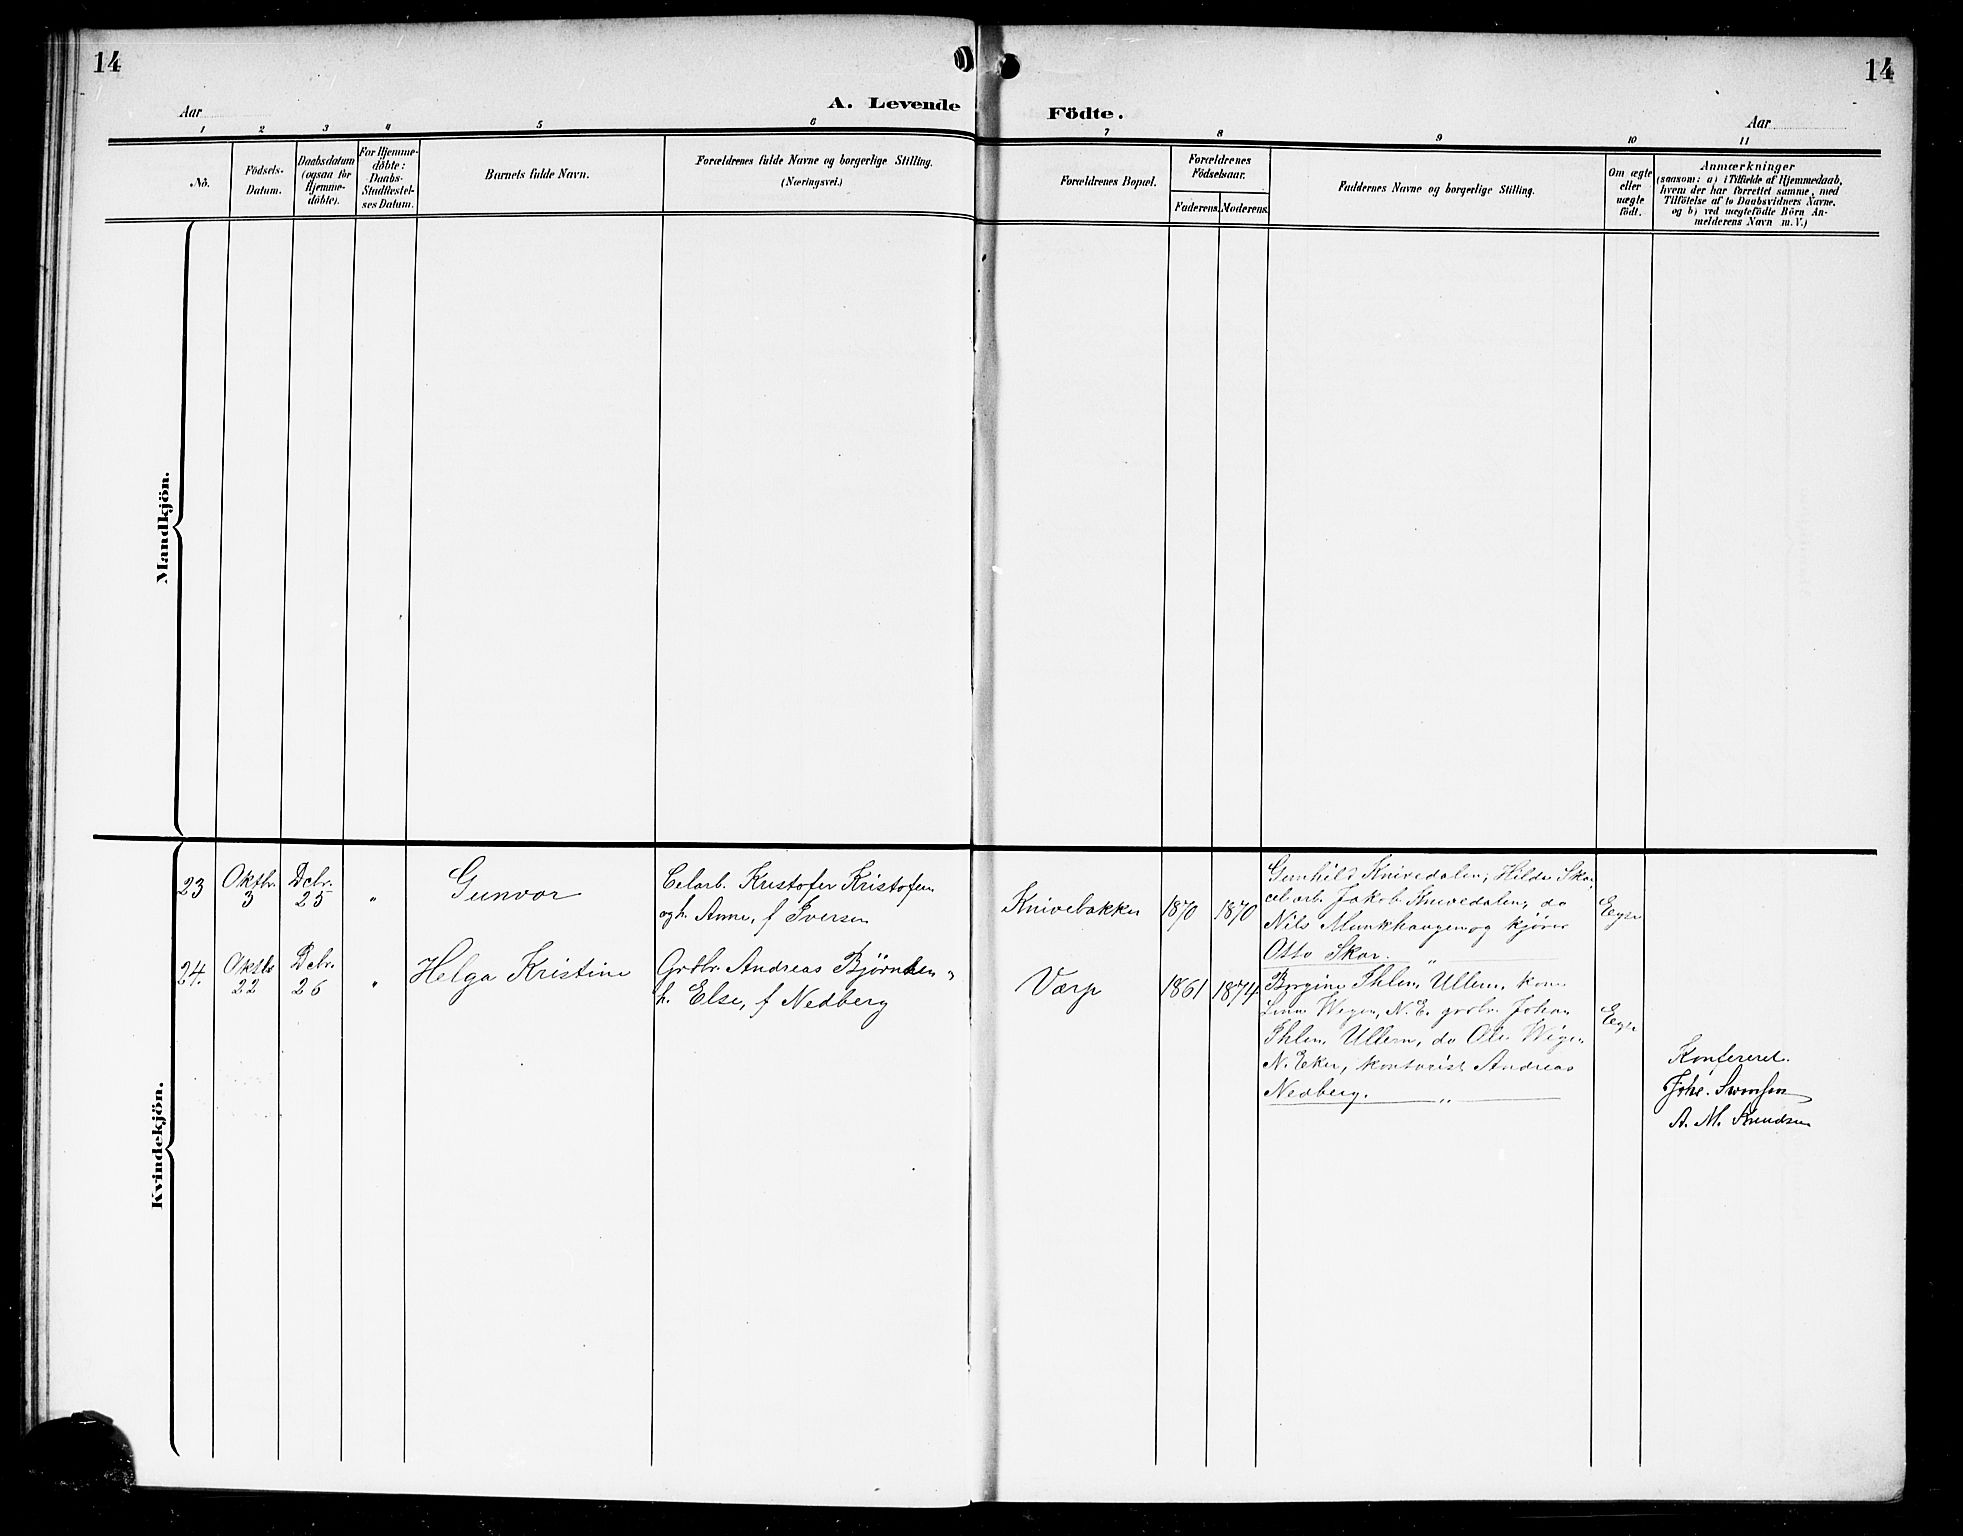 14
14
Aar
A. Levende
Födte.
Aar
1 2 3 4 5 6 7 8 9 10 11
No.
Födsels-
Datum.
Daabsdatum
(ogsaa for
Hjemme-
döbte).
For Hjemme-
döbte:
Daabs-
Stadfestel-
ses Datum.
Barnets fulde Navn.
Forældrenes fulde Navne og borgerlige Stilling.
(Næringsvei.)
Forældrenes Bopæl.
Forældrenes
Födselsaar.
Faderens. Moderens.
Faddernes Navne og borgerlige Stilling.
Om ægte
eller
uægte
födt.
Anmærkninger
(saasom: a) i Tilfælde af Hjemmedaab,
hvem der har forrettet samme, med
Tilföielse af to Daabsvidners Navne.
og b) ved uægtefödte Börn An-
melderens Navn m. V.)
Mandkjön.
Kvindekjön.
23
Oktbr.
3
Dcbr.
25
"
Gunvor
Celarb. Kristofer Kristofersen
og h. Anne, f Iversen
Knivebakken
1870
1870
Gunhild Knivedalen, Hilda Skar,
celarb. Jakob Knivedalen, do
Nils Munkhaugen og kjører
Otto Skar. "
Egte
24.
Oktbr
22
Dcbr.
26
"
Helga Kristine
Grdbr. Andreas Bjørnsen
h. Else, f Nedberg
Værp
1861
1874
Borgine Ihlen, Ullern, kone
Wegen, N. E. grdbr. Johan
Ihlen, Ullern, do Ole Wegen
N. Eker, kontorist Andreas
Nedberg. "
Egte
Konfereret.
Johs. Svensen
A. M. Knudsen